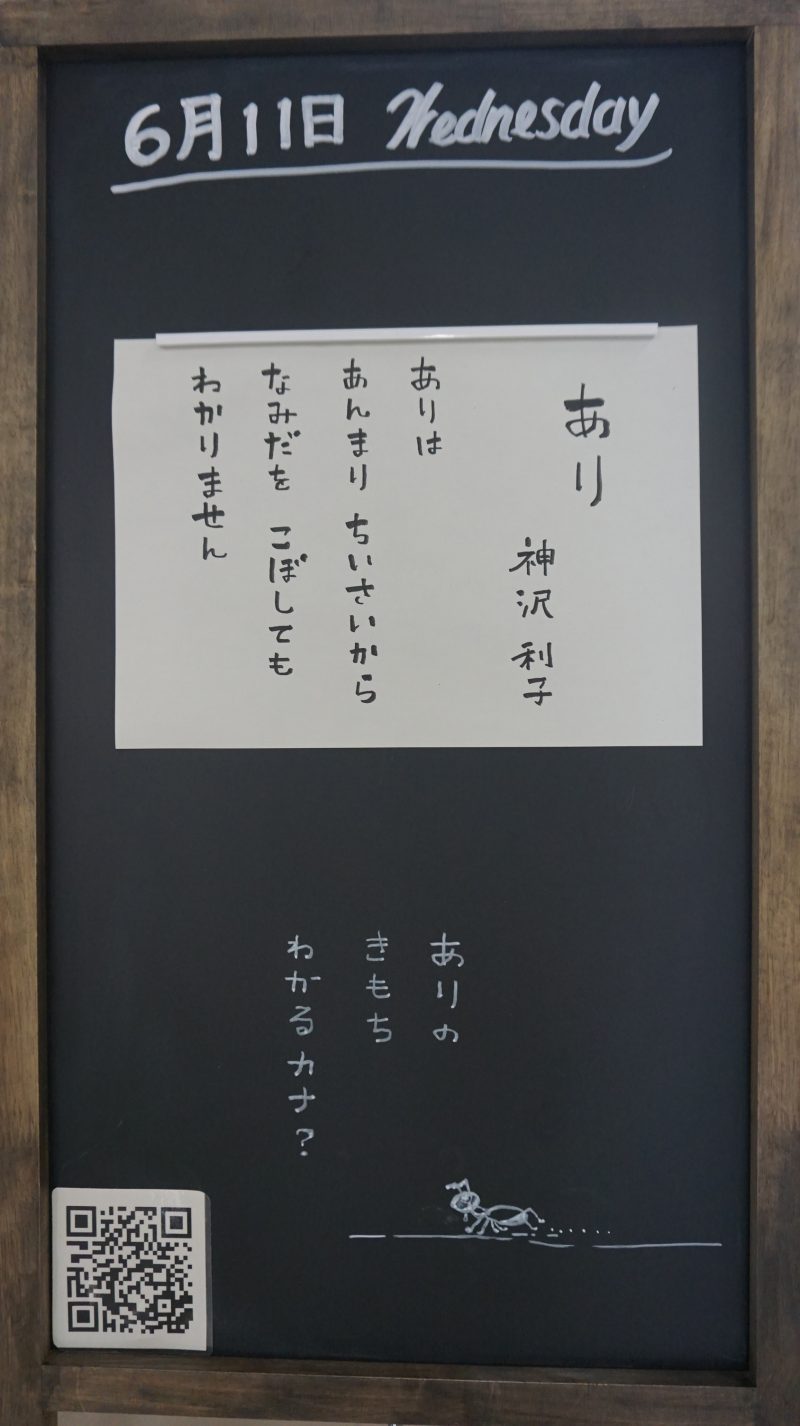 6月11日 Wednesday
あり
神沢 利子
ありは
あんまり ちいさいから
なみだを こぼしても
わかりません
ありの
きもち
わかるカナ?